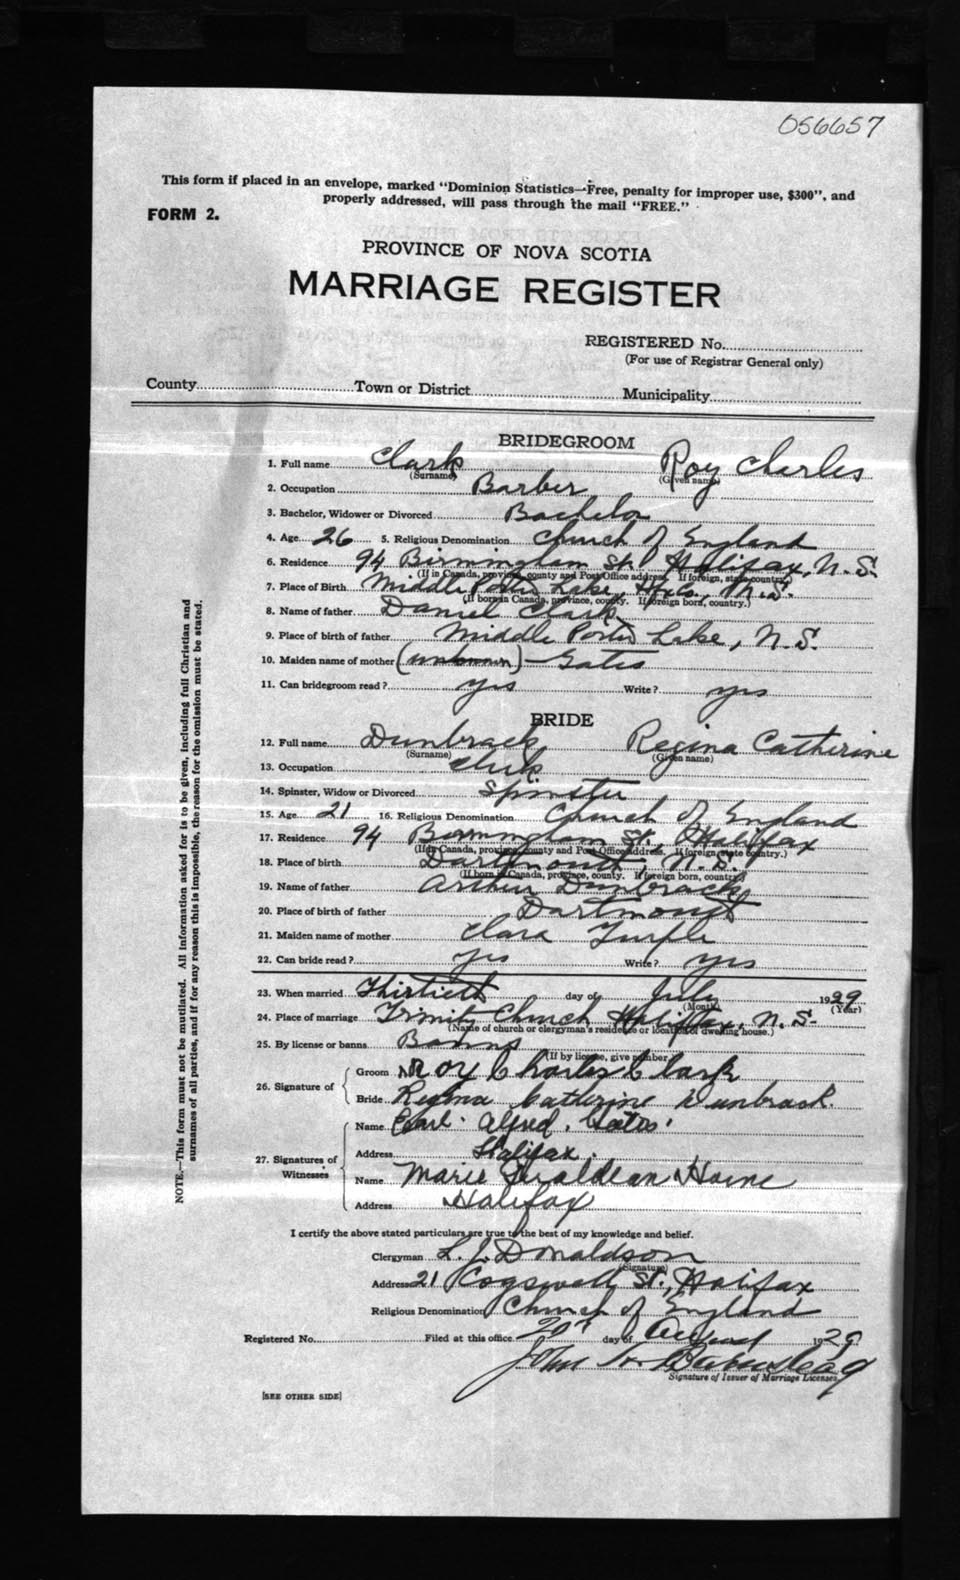 056657
This form if placed in an envelope, marked "Dominion Statistics—Free, penalty for improper use, $300", and
properly addressed, will pass through the mail "FREE."
FORM 2.
PROVINCE OF NOVA SCOTIA
MARRIAGE REGISTER
REGISTERED No.
(For use of Registrar General only)
County Town or District Municipality
BRIDEGROOM
1. Full name Clark Roy Charles
(Surname) (Given name)
2. Occupation Barber
3. Bachelor, Widower or Divorced Bachelor
4. Age 26 5. Religious Denomination Church of England
6. Residence 94 Birmingham St. Halifax, N.S.
(If in Canada, province, county and Post Office address. If foreign, state country.)
7. Place of Birth Middle Porter Lake, N.S.
(If born in Canada, province, county. If foreign born, country.)
8. Name of father Daniel Clark
9. Place of birth of father Middle Porter Lake, N.S.
10. Maiden name of mother (unknown) – Gates
11. Can bridegroom read? yes Write? yes
BRIDE
12. Full name Dunbrack Regina Catherine
(Surname) (Given name)
13. Occupation Clerk.
14. Spinster, Widow or Divorced Spinster
15. Age 21 16. Religious Denomination Church of England
17. Residence 94 Birmingham St., Halifax
(If in Canada, province, county and Post Office address. If foreign state country.)
18. Place of birth Dartmouth, N.S.
(If born in Canada, province, county. If foreign born, country)
19. Name of father Arthur Dunbrack
20. Place of birth of father Dartmouth
21. Maiden name of mother Clara Turple
22. Can bride read? yes Write? yes
23. When married Thirtieth day of July 1929
(Month) (Year)
24. Place of marriage Trinity Church Halifax, N.S.
(Name of church or clergyman's residence or location of dwelling house.)
25. By license or banns Banns
(If by license, give number)
26. Signature of
Groom Roy Charles Clark
Bride Regina Catherine Dunbrack.
27. Signatures of Witnesses
Name Earl Alfred Gates
Address Halifax.
Name Marie Geraldean Horne
Address Halifax
I certify the above stated particulars are true to the best of my knowledge and belief.
Clergyman L. J. Donaldson
(Signature)
Address 21 Cogswell St., Halifax
Religious Denomination Church of England
Registered No. Filed at this office 20th day of August 1929
John
Signature of Issuer of Marriage Licenses
[SEE OTHER SIDE]
NOTE.—This form must not be mutilated. All information asked for is to be given, including full Christian and
surnames of all parties, and if for any reason this is impossible, the reason for the omission must be stated.